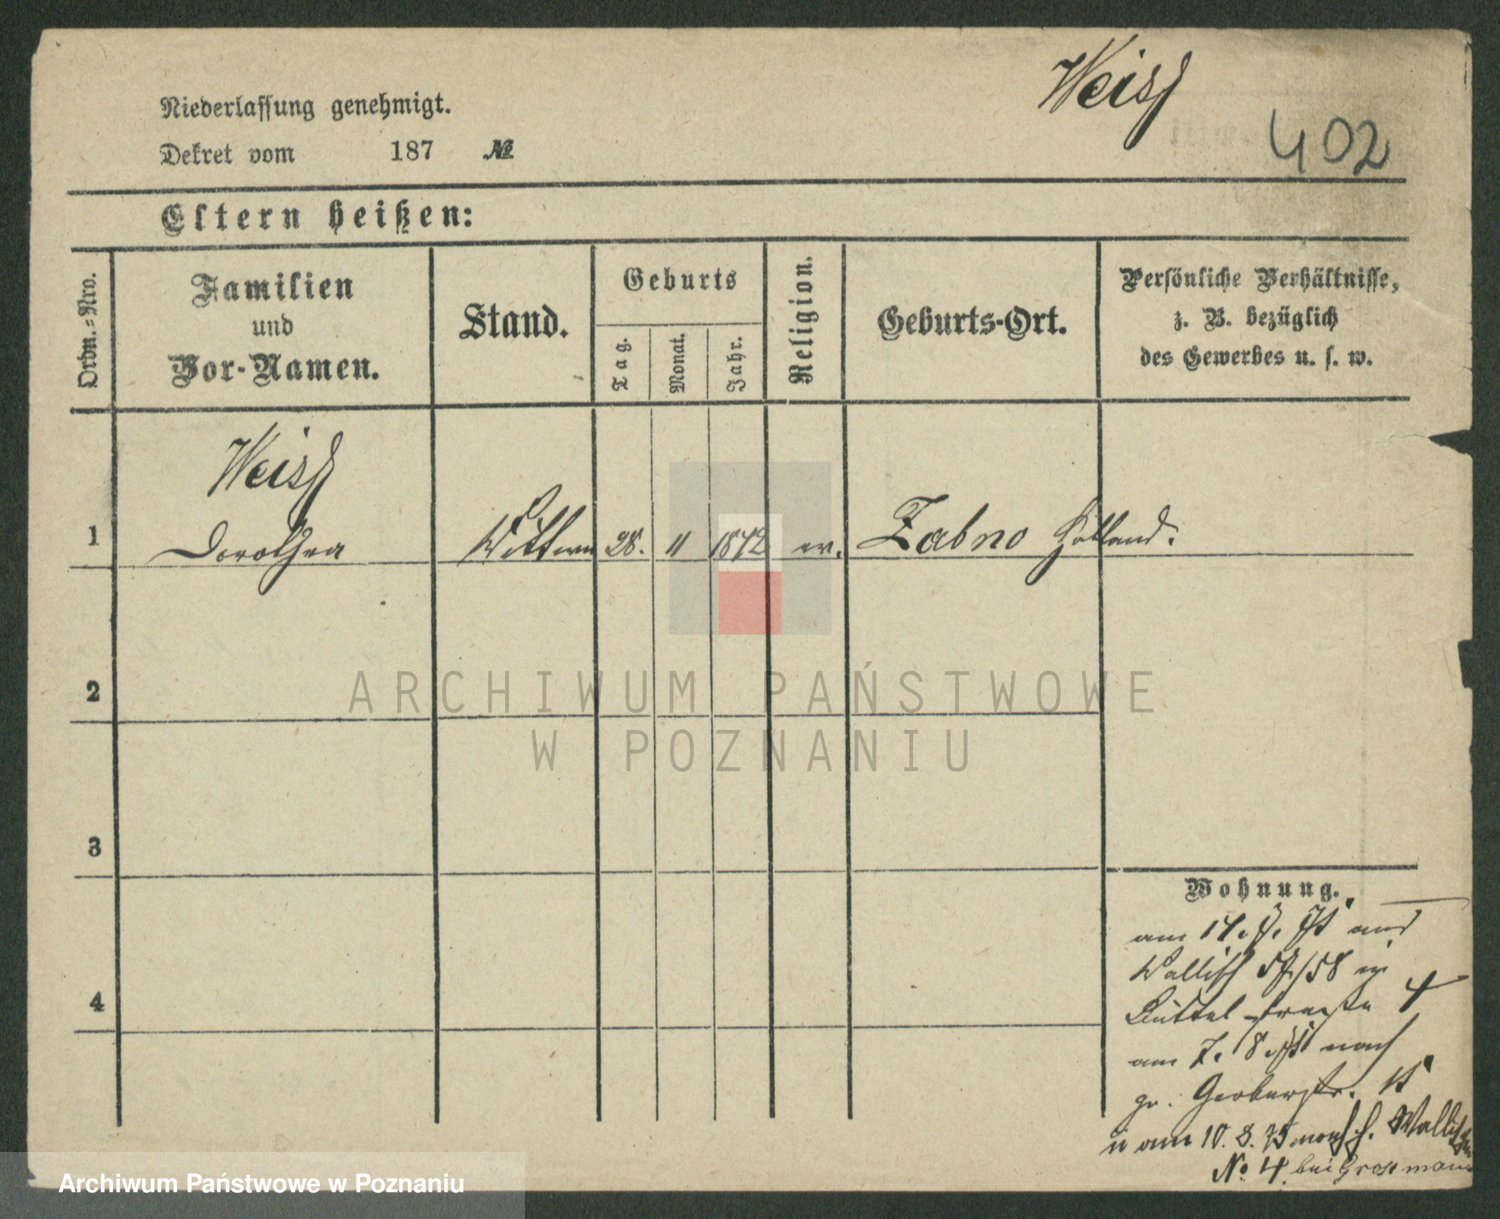 Weiss
402
Niederlassung genehmigt.
Dekret vom 187 №
Eltern heißen:
Ordn.-Nro.
Familien
und
Vor-Namen.
Stand.
Geburts
Tag.
Monat.
Jahr.
Religion.
Geburts-Ort.
Persönliche Verhältnisse,
z. B. bezüglich
des Gewerbes u. s. w.
Weiss
1 Dorothea 28. 11 ev. Zabno Holland.
2
3
4
Wohnung.
am 14. aus
Wallisch 57/58 in
Büttelstrasse 4
am 7. 8. nach
gr. Gerberstr.
u am 10. 8. 75 nach Wallisch
No 4 bei Grossmann
ARCHIWUM PAŃSTWOWE
W POZNANIU
Archiwum Państwowe w Poznaniu